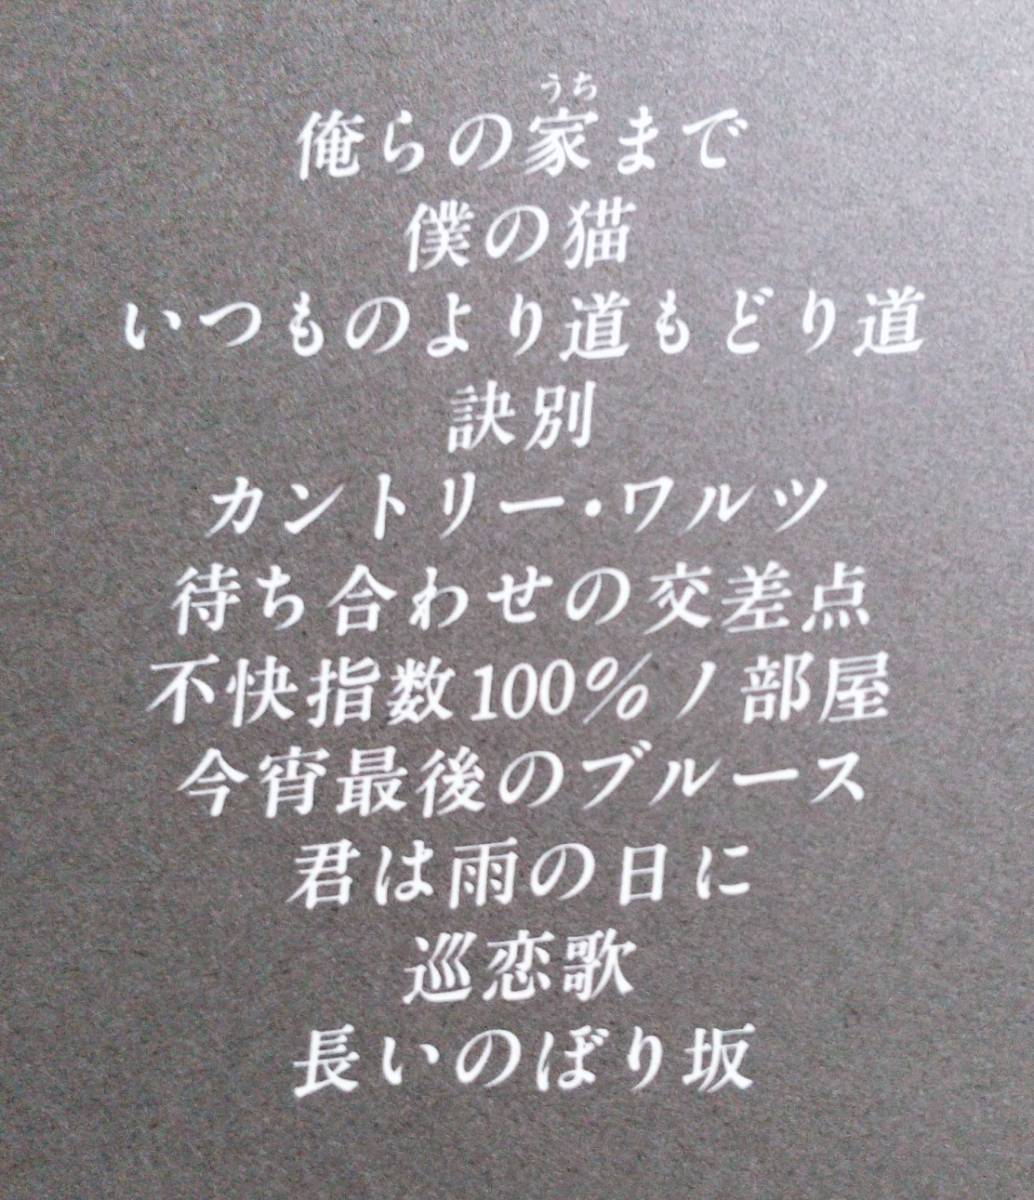 うち
俺らの家まで
僕の猫
いつものより道もどり道
訣別
カントリー・ワルツ
待ち合わせの交差点
不快指数100%ノ部屋
今宵最後のブルース
君は雨の日に
巡恋歌
長いのぼり坂